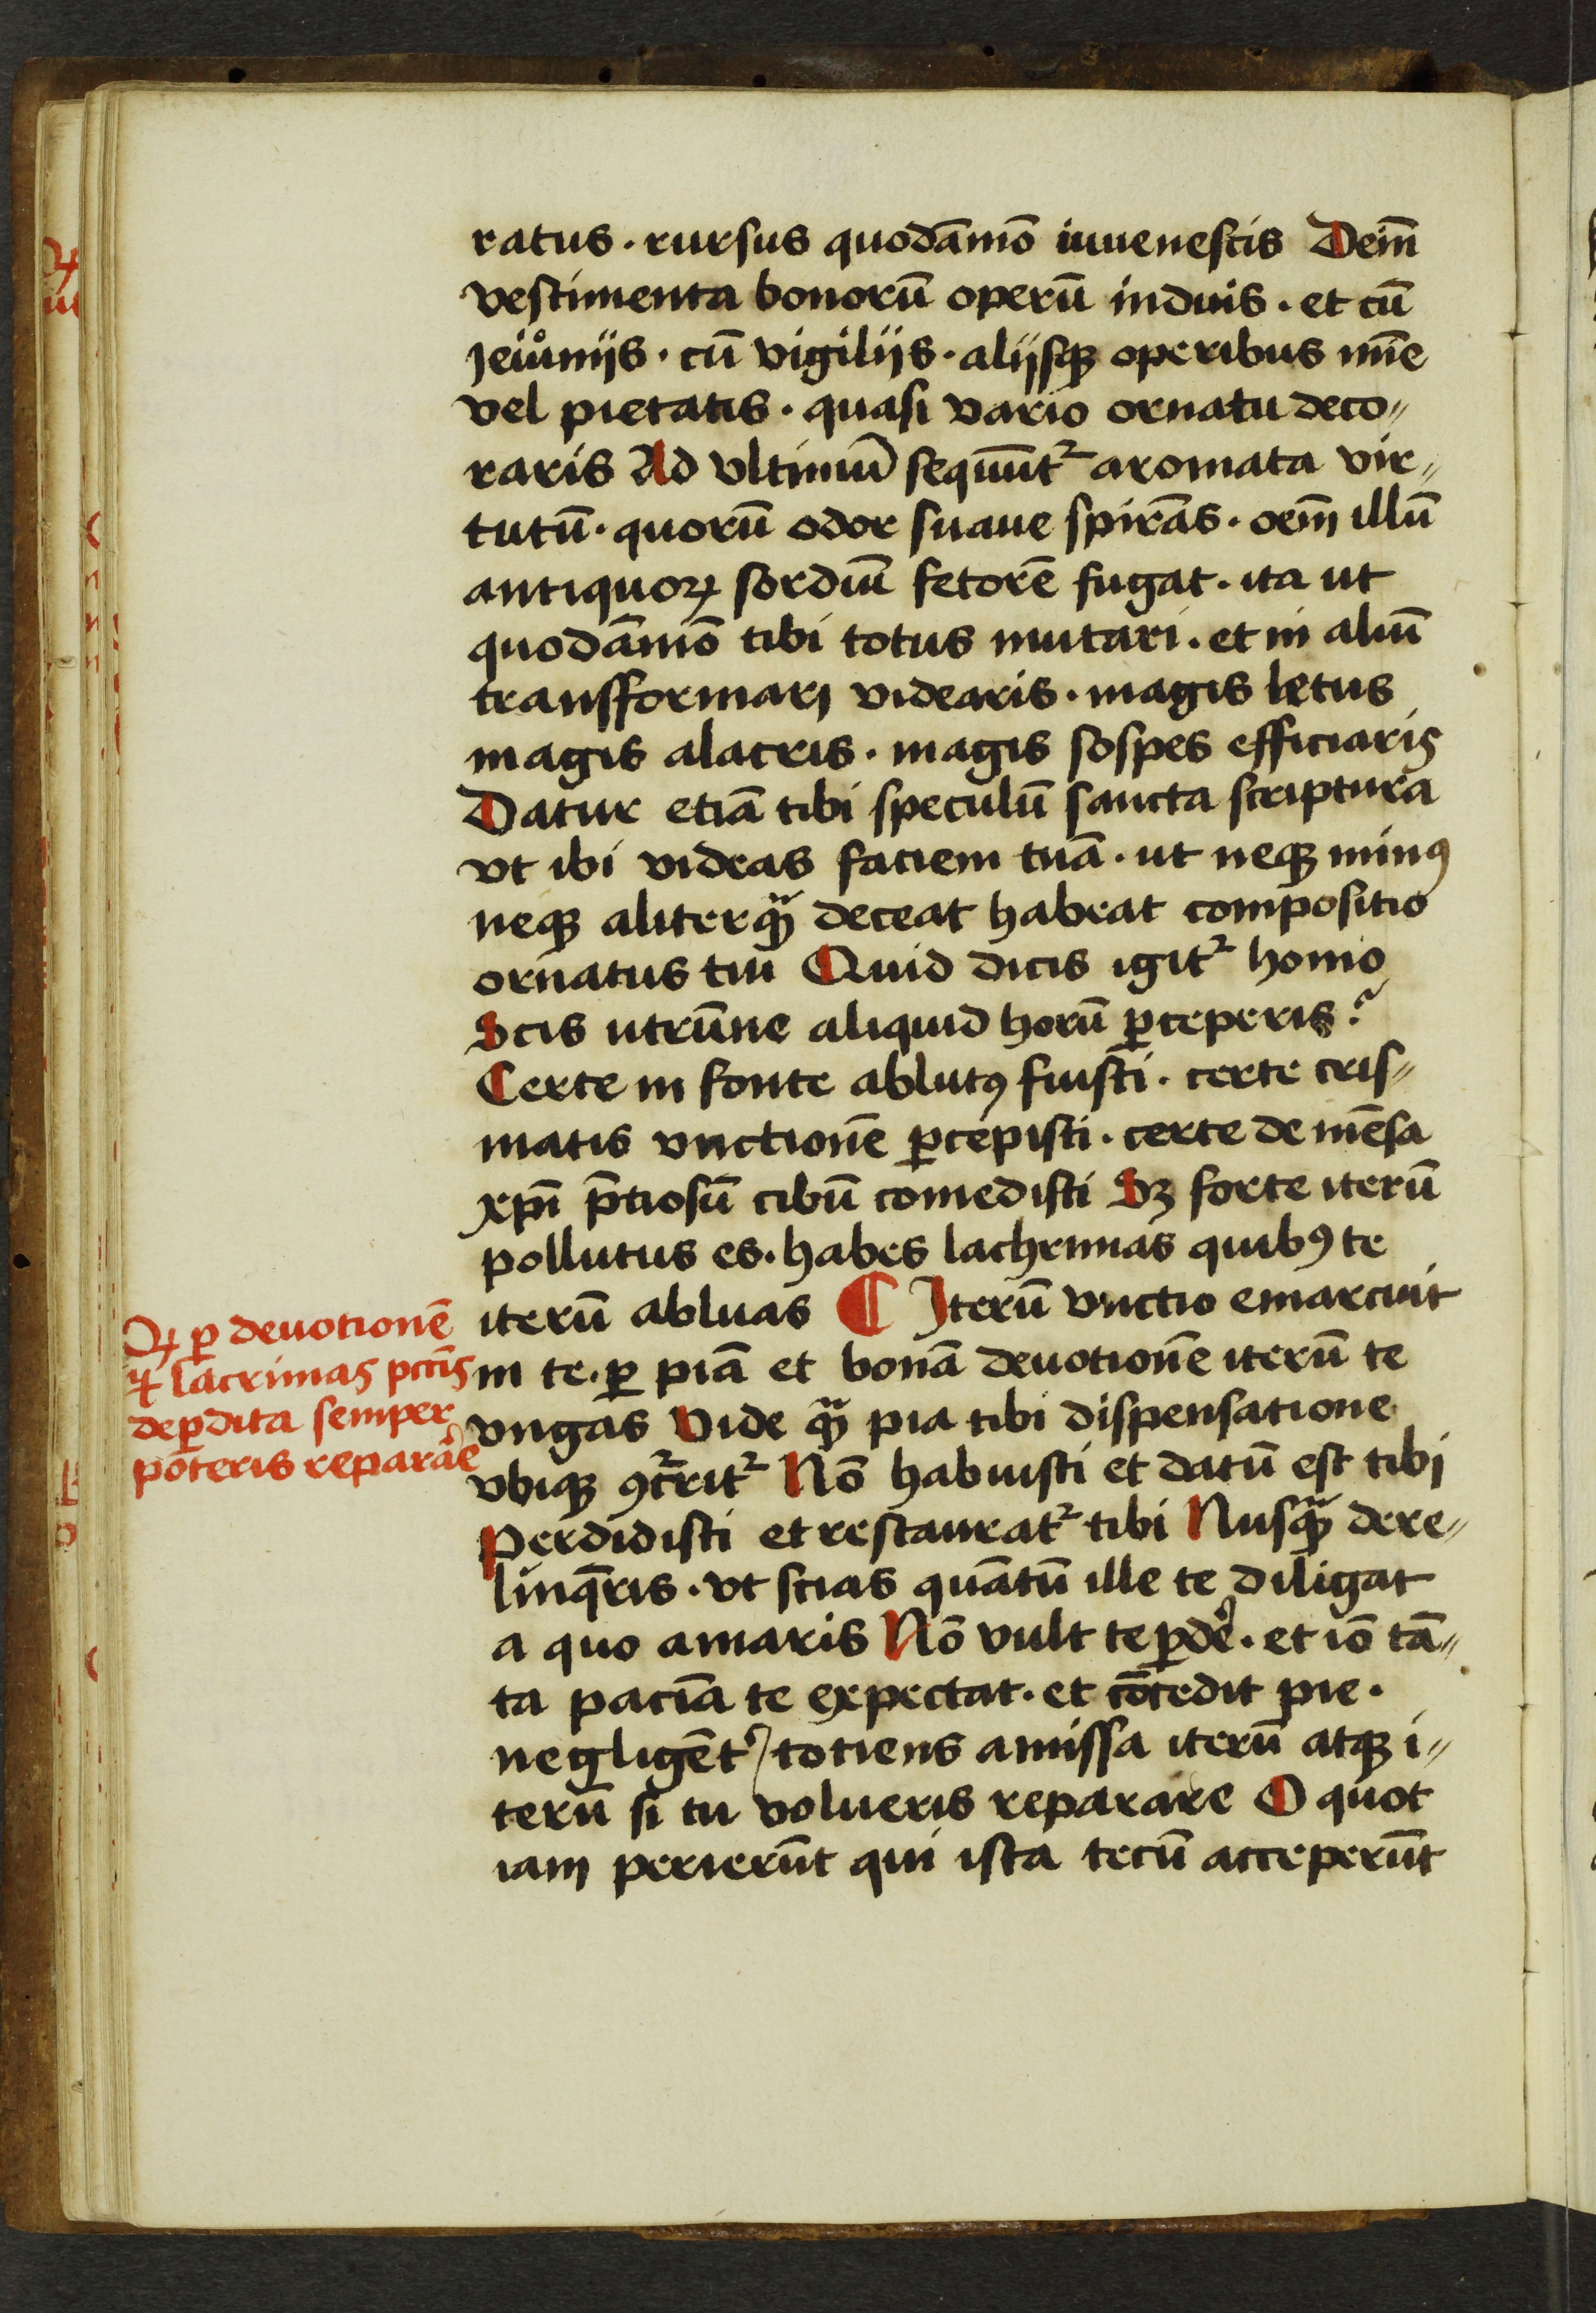 ratus . rursus quodāmō iuuenescis Deīn
vestimenta bonorū operū induis . et cū
Jeiůnijs . cū vigilijs . alijsqꝫ operibus mīe
vel pietatis . quasi vario ornatu deco〃
raris Ad vltimū sequūt² aromata vir〃
tutū . quorū odor suaue spirās . oēm illū
antiquoꝝ sordiū fetorē fugat . ita ut
quodāmō tibi totus mutari . et in aliū
transformari videaris . magis letus
magis alacris . magis sospes efficiaris
Datur etiā tibi speculū sancta scriptura
vt ibi videas faciem tuā . ut neqꝫ minꝰ
neqꝫ aliter qꝫ̄ deceat habeat compositio
ornatus tui Quid dicis igit² homo
Scis utrūne aliquid horū ꝑceperis ?
Certe in fonte ablutꝰ fuisti . certe cris〃
matis vnctionē ꝑcepisti . certe de mēsa
xp̄i p̄tiosū cibū comedisti Sꝫ forte iterū
pollutus es . habes lachrimas quibꝰ te
iterū abluas ¶ Iterū vnctio emarcuit
in te . ꝑ piā et bonā deuotionē iterū te
vngas Vide qꝫ̄ pia tibi dispensatione
vbiqꝫ ꝯc²rit² Nō habuisti et datū est tibi
Perdidisti et restaurat² tibi Nusqꝫ̄ dere〃
linq̄ris . vt scias quātū ille te diligat
a quo amaris Nō vult te ꝑdē . et iō tā〃
ta paciā te expectat . et cōcedit pie .
negligēt᾽ totiens amissa iterū atqꝫ i〃
terū si tu volueris reparare O quot
iam perierūt qui ista tecū acceperūt
Qꝙ ꝑ deuotionē
⁊ lacrimas pctīs
deꝑdita semper
poteris reparāe